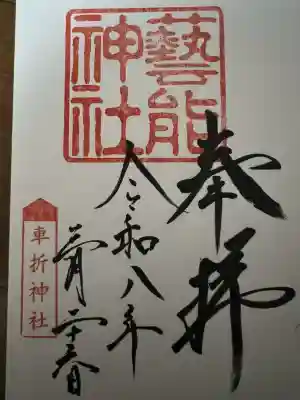 藝能
神社
奉拝
令和八年
車折神社